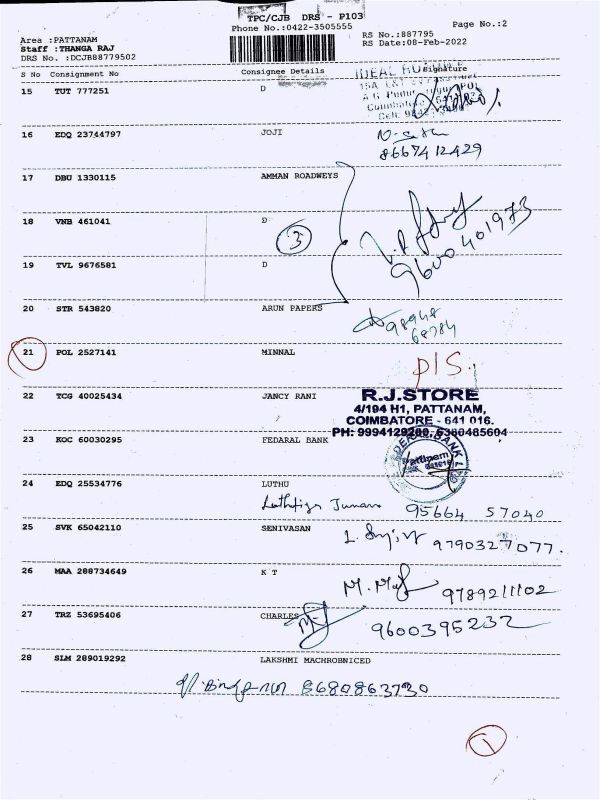 TPC/CJB DRS - P103
Phone No.:0422-3505555
Page No.:2
Area :PATTANAM
Staff :THANGA RAJ
DRS No. :DCJB88779502
RS No.:887795
RS Date:08-Feb-2022
S No Consignment No Consignee Details Signature
15 TUT 777251 D
16 EDQ 23744797 JOJI
8667412429
17 DBU 1330115 AMMAN ROADWEYS
18 VNB 461041 D
3
9600401973
19 TVL 9676581 D
20 STR 543820 ARUN PAPERS
98948
68784
21 POL 2527141 MINNAL
D/S
22 TCG 40025434 JANCY RANI
R.J.STORE
4/194 H1, PATTANAM,
COIMBATORE - 641 016.
PH: 9994129200, 6380485604
23 KOC 60030295 FEDARAL BANK
24 EDQ 25534776 LUTHU
95664 57040
25 SVK 65042110 SENIVASAN
9790327077.
26 MAA 288734649 K T
9789211102
27 TRZ 53695406 CHARLES
9600395232
28 SLM 289019292 LAKSHMI MACHROBNICED
8680863730
1